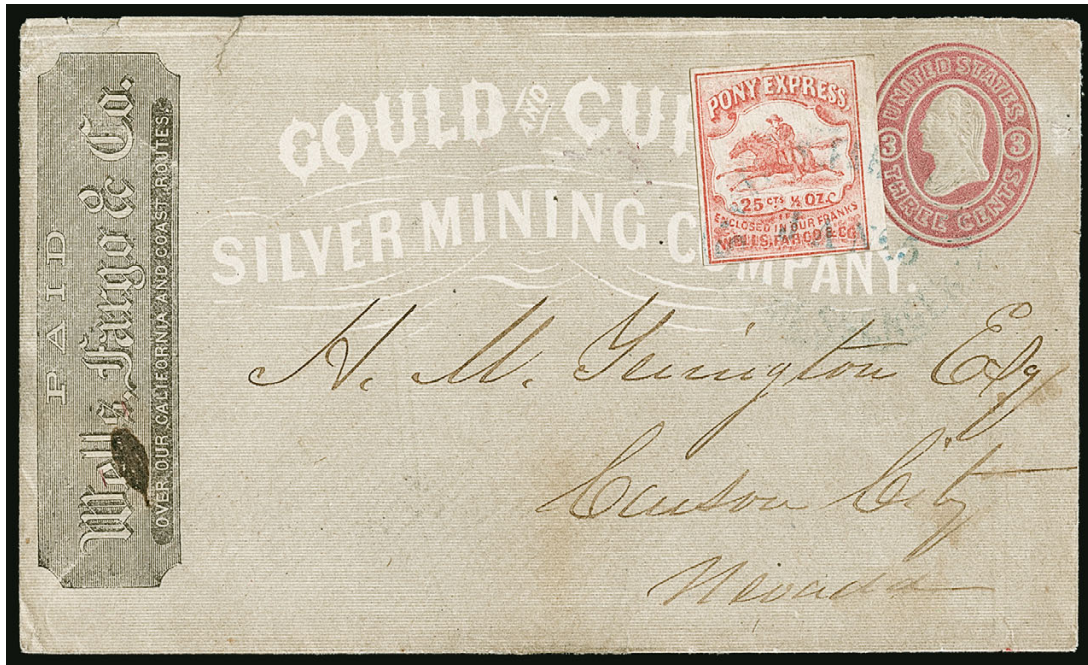 PAID
Wells, Fargo & Co.
OVER OUR CALIFORNIA AND COAST ROUTES.
GOULD AND CUR
SILVER MINING COMPANY.
PONY EXPRESS
25 CTS ½ OZ.
IF
ENCLOSED IN OUR FRANKS
WELLS, FARGO & CO.
UNITED STATES
3 3
THREE CENTS
H. M. Yerington Esq
Carson City
Nevada